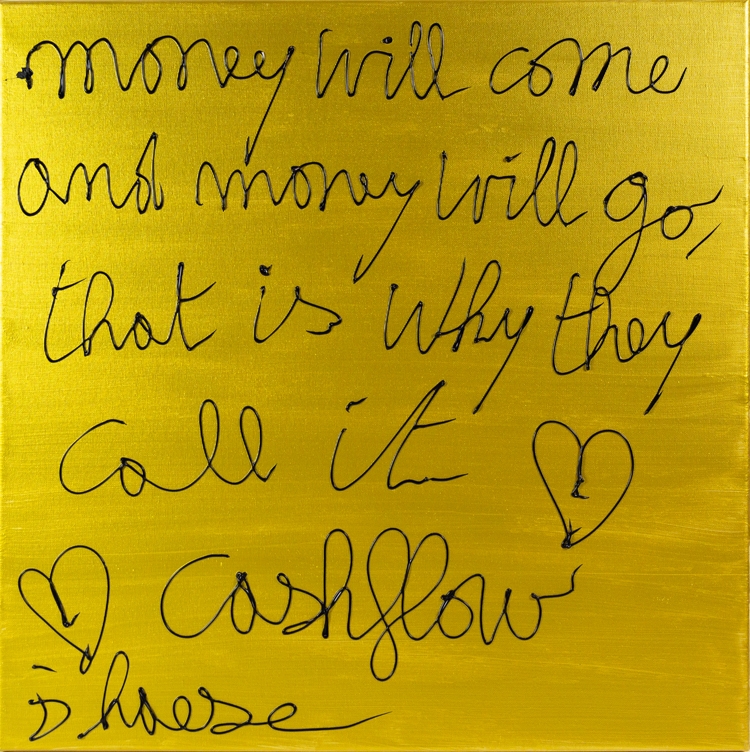 money will come
and money will go,
that is why they
call it
cashflow